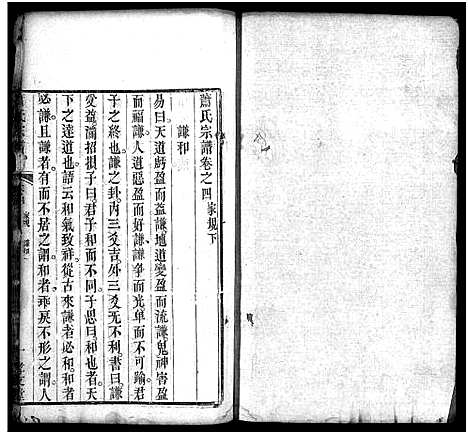 蕭氏宗譜卷之四家規下
謙和
易曰天道虧盈而益謙地道變盈而流謙鬼神害盈
而福謙人道惡盈而好謙謙尊而光卑而不可踰君
子之終也謙之卦內三爻吉外三爻无不利書曰謙
受益滿招損孔子曰君子和而不同子思曰和也者天
下之達道也語云和氣致祥從古來謙者必和和者
必謙且謙者有而不居之謂和者乖戾不形之謂人